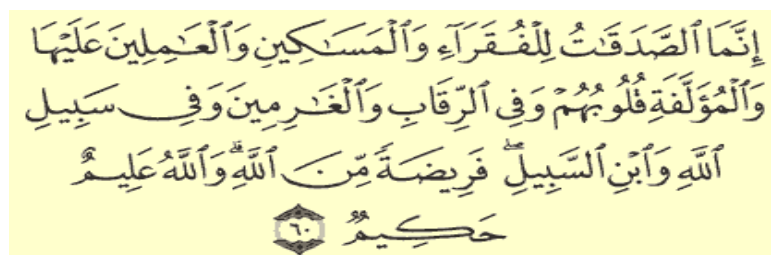 إِنَّمَا ٱلصَّدَقَٰتُ لِلْفُقَرَآءِ وَٱلْمَسَٰكِينِ وَٱلْعَٰمِلِينَ عَلَيْهَا
وَٱلْمُؤَلَّفَةِ قُلُوبُهُمْ وَفِى ٱلرِّقَابِ وَٱلْغَٰرِمِينَ وَفِى سَبِيلِ
ٱللَّهِ وَٱبْنِ ٱلسَّبِيلِ ۖ فَرِيضَةً مِّنَ ٱللَّهِ ۗ وَٱللَّهُ عَلِيمٌ
حَكِيمٌ ٦٠